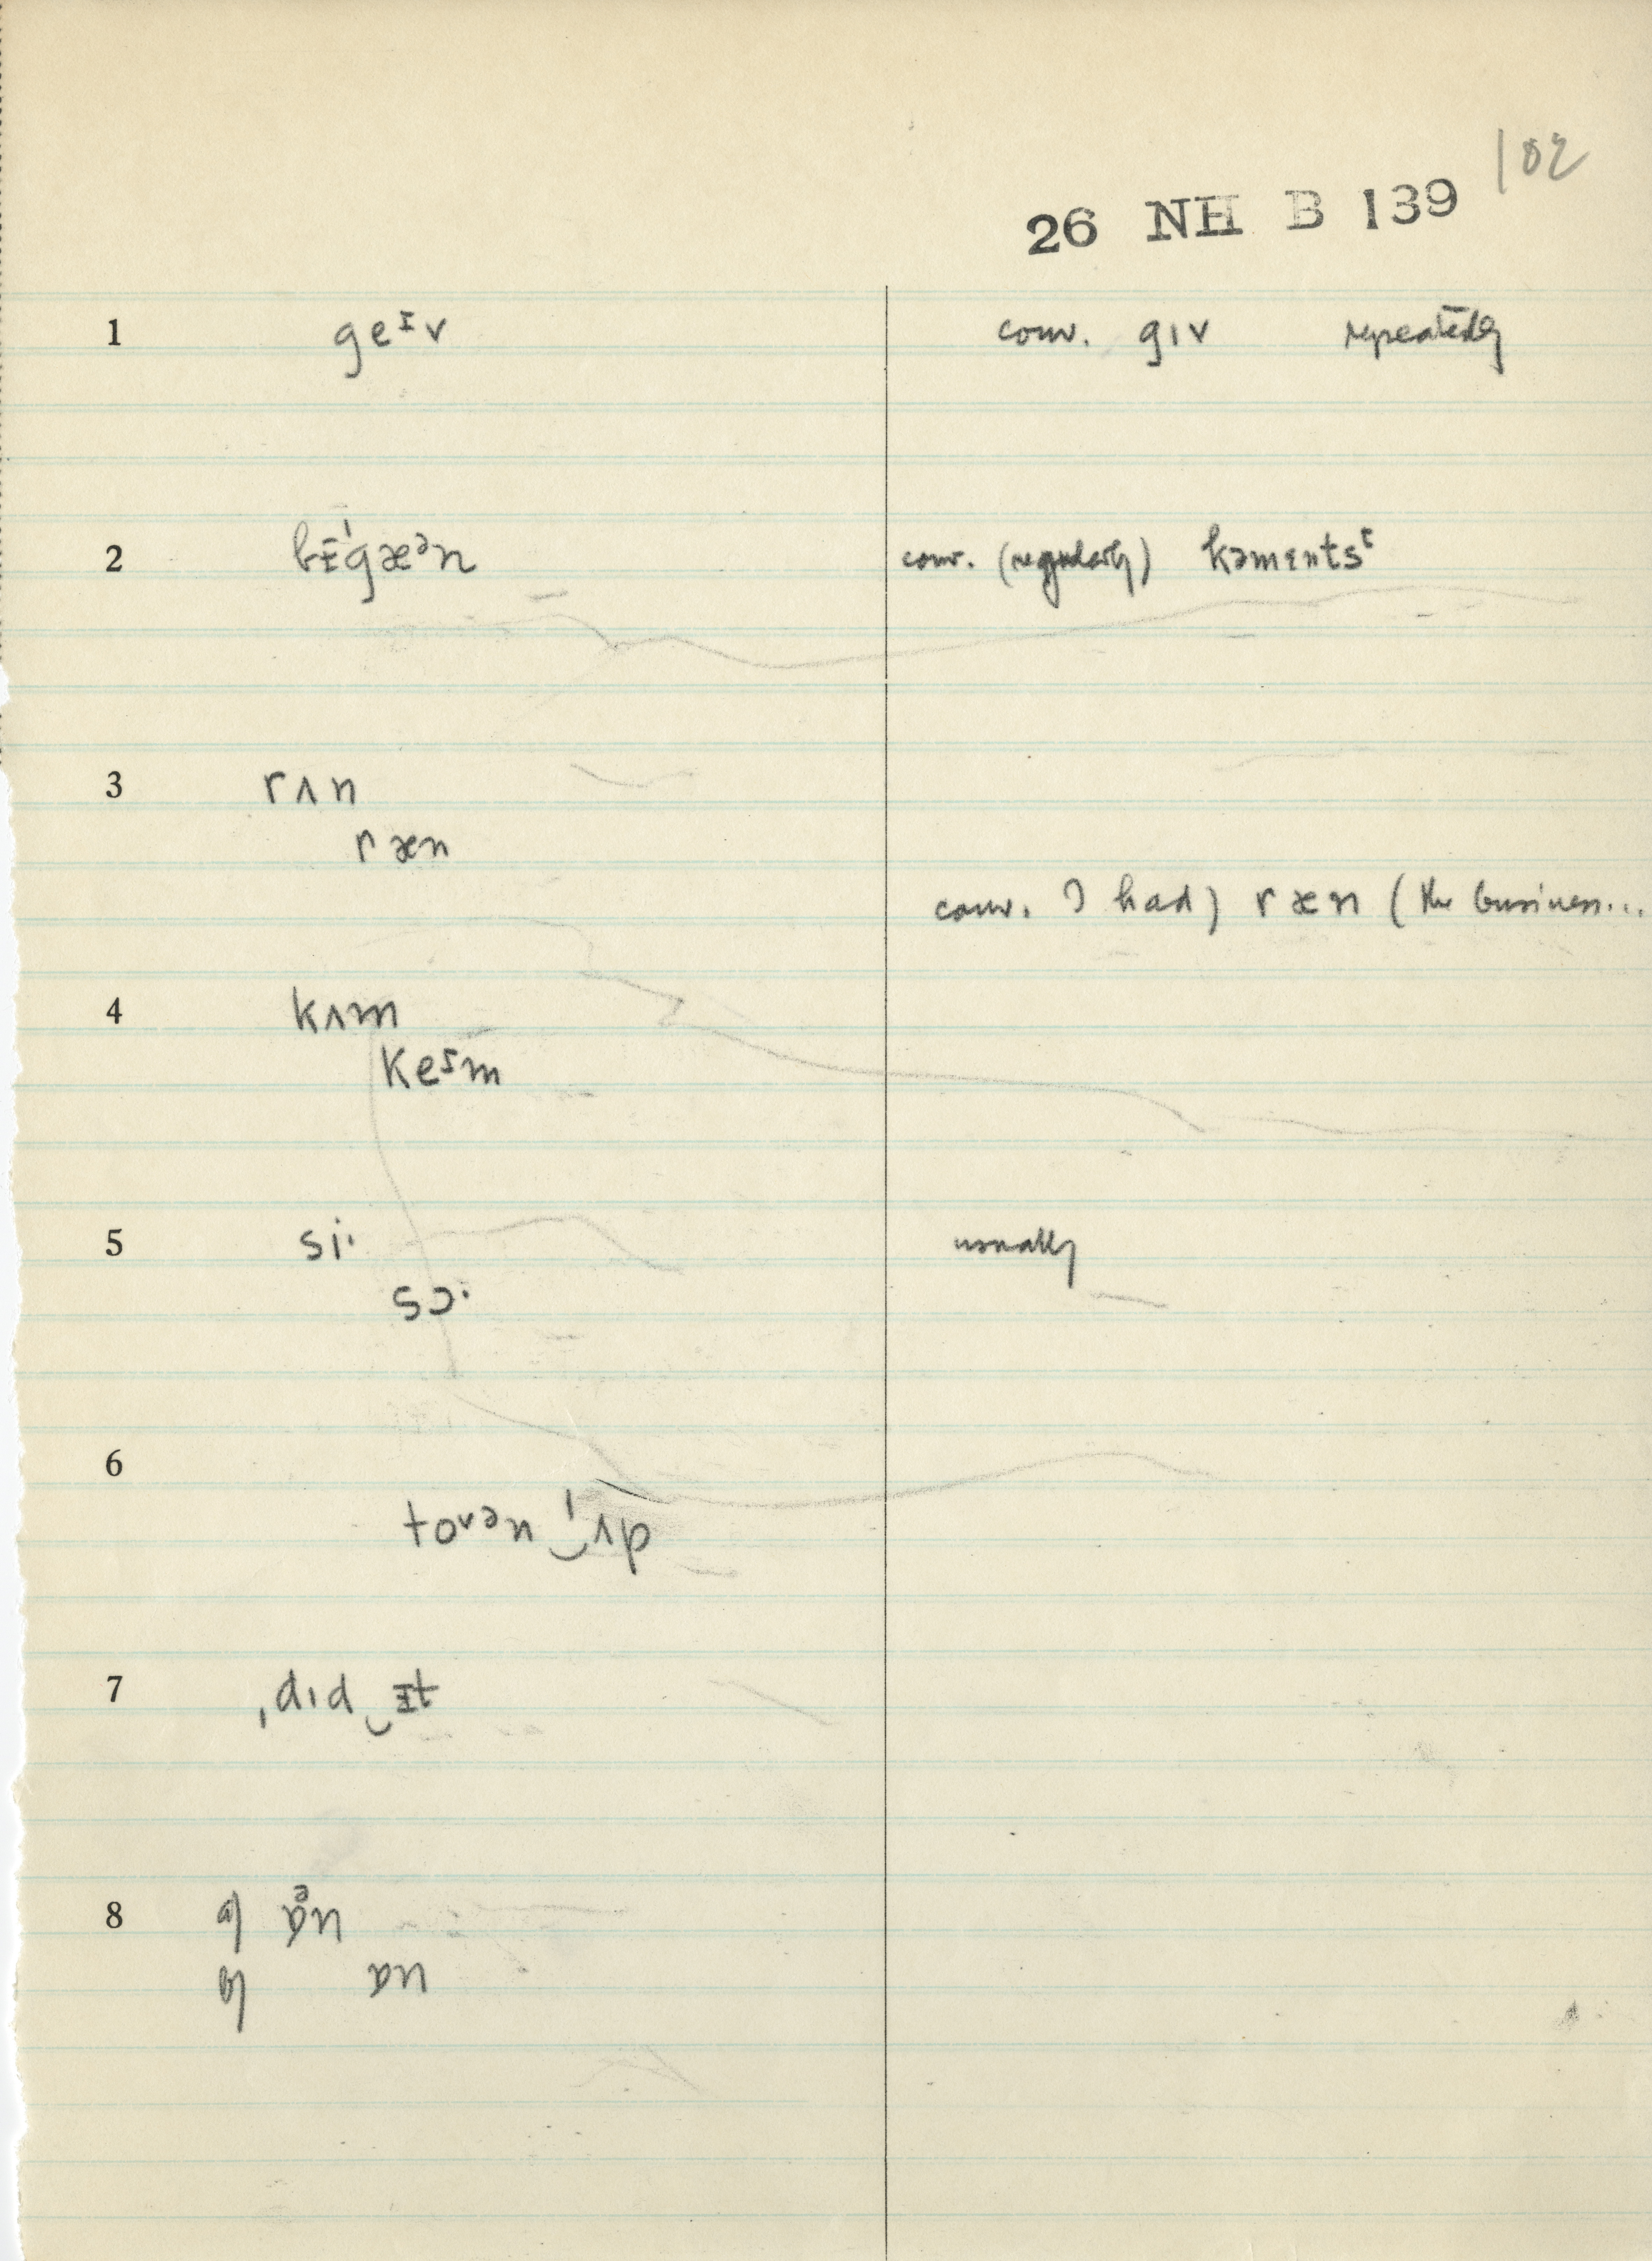 102
26 NH B 139
1 geɪv conv. gɪv repeatedly
2 bɪˈgæᵊn conv. (regularly) kəments
3 rʌn
ræn
conv. I had) ræn (the business...
4 kʌm
keɪm
5 si· usually
sɔ·
6
tovən‿ˈʌp
7 ˌdɪd‿ɪt
8 ɒn
ɒn